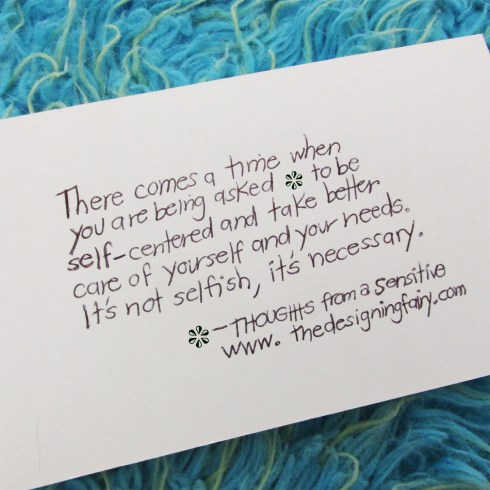 There comes a time when
you are being asked to be
self-centered and take better
care of yourself and your needs.
It's not selfish, it's necessary.
- THOUGHTS from a sensitive
www. thedesigningfairy.com